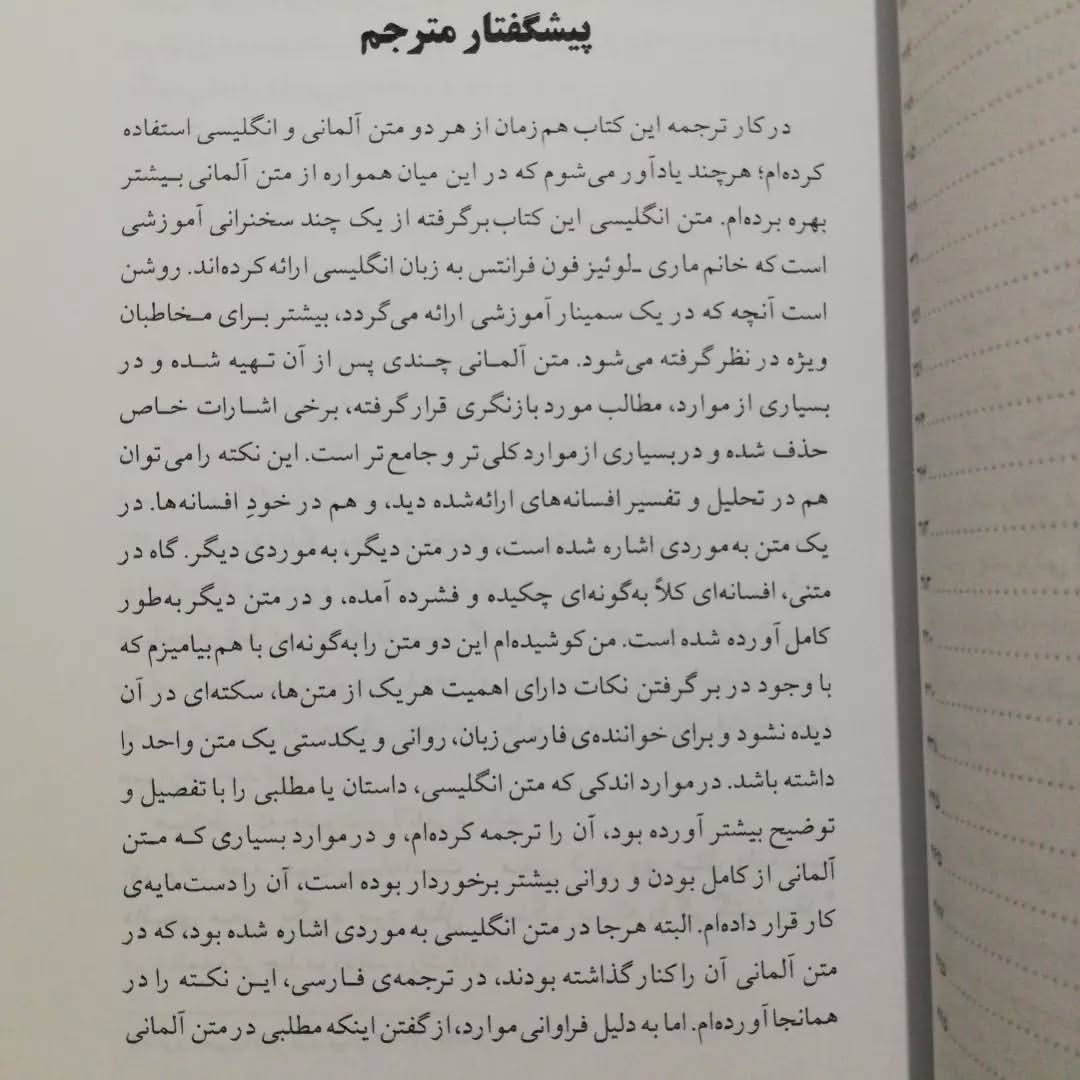 پیشگفتار مترجم
در کار ترجمه این کتاب هم‌زمان از هر دو متن آلمانی و انگلیسی استفاده
کرده‌ام؛ هرچند یادآور می‌شوم که در این میان همواره از متن آلمانی بیشتر
بهره برده‌ام. متن انگلیسی این کتاب برگرفته از یک چند سخنرانی آموزشی
است که خانم ماری ـ لوئیز فون فرانتس به زبان انگلیسی ارائه کرده‌اند. روشن
است آنچه که در یک سمینار آموزشی ارائه می‌گردد، بیشتر برای مخاطبان
ویژه در نظر گرفته می‌شود. متن آلمانی چندی پس از آن تهیه شده و در
بسیاری از موارد، مطالب مورد بازنگری قرار گرفته، برخی اشارات خاص
حذف شده و در بسیاری از موارد کلی‌تر و جامع‌تر است. این نکته را می‌توان
هم در تحلیل و تفسیر افسانه‌های ارائه‌شده دید، و هم در خودِ افسانه‌ها. در
یک متن به موردی اشاره شده است، و در متن دیگر، به موردی دیگر. گاه در
متنی، افسانه‌ای کلاً به‌گونه‌ای چکیده و فشرده آمده، و در متن دیگر به‌طور
کامل آورده شده است. من کوشیده‌ام این دو متن را به‌گونه‌ای با هم بیامیزم که
با وجود در بر گرفتن نکات دارای اهمیت هر یک از متن‌ها، سکته‌ای در آن
دیده نشود و برای خواننده‌ی فارسی زبان، روانی و یکدستی یک متن واحد را
داشته باشد. در موارد اندکی که متن انگلیسی، داستان یا مطلبی را با تفصیل و
توضیح بیشتر آورده بود، آن را ترجمه کرده‌ام، و در موارد بسیاری که متن
آلمانی از کامل بودن و روانی بیشتر برخوردار بوده است، آن را دست‌مایه‌ی
کار قرار داده‌ام. البته هرجا در متن انگلیسی به موردی اشاره شده بود، که در
متن آلمانی آن را کنار گذاشته بودند، در ترجمه‌ی فارسی، این نکته را در
همانجا آورده‌ام. اما به دلیل فراوانی موارد، از گفتن اینکه مطلبی در متن آلمانی